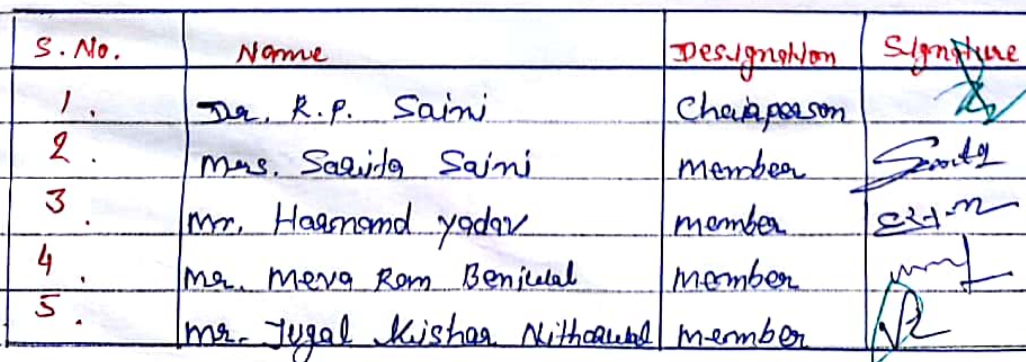 S. No. Name Designation Signature
1. Dr. R.P. Saini Chairperson
2. Mrs. Sarita Saini member
3. Mr. Harnand yadav member
4. Mr. Meva Ram Beniwal member
5. Mr. Jugal Kishor Nitharwal member